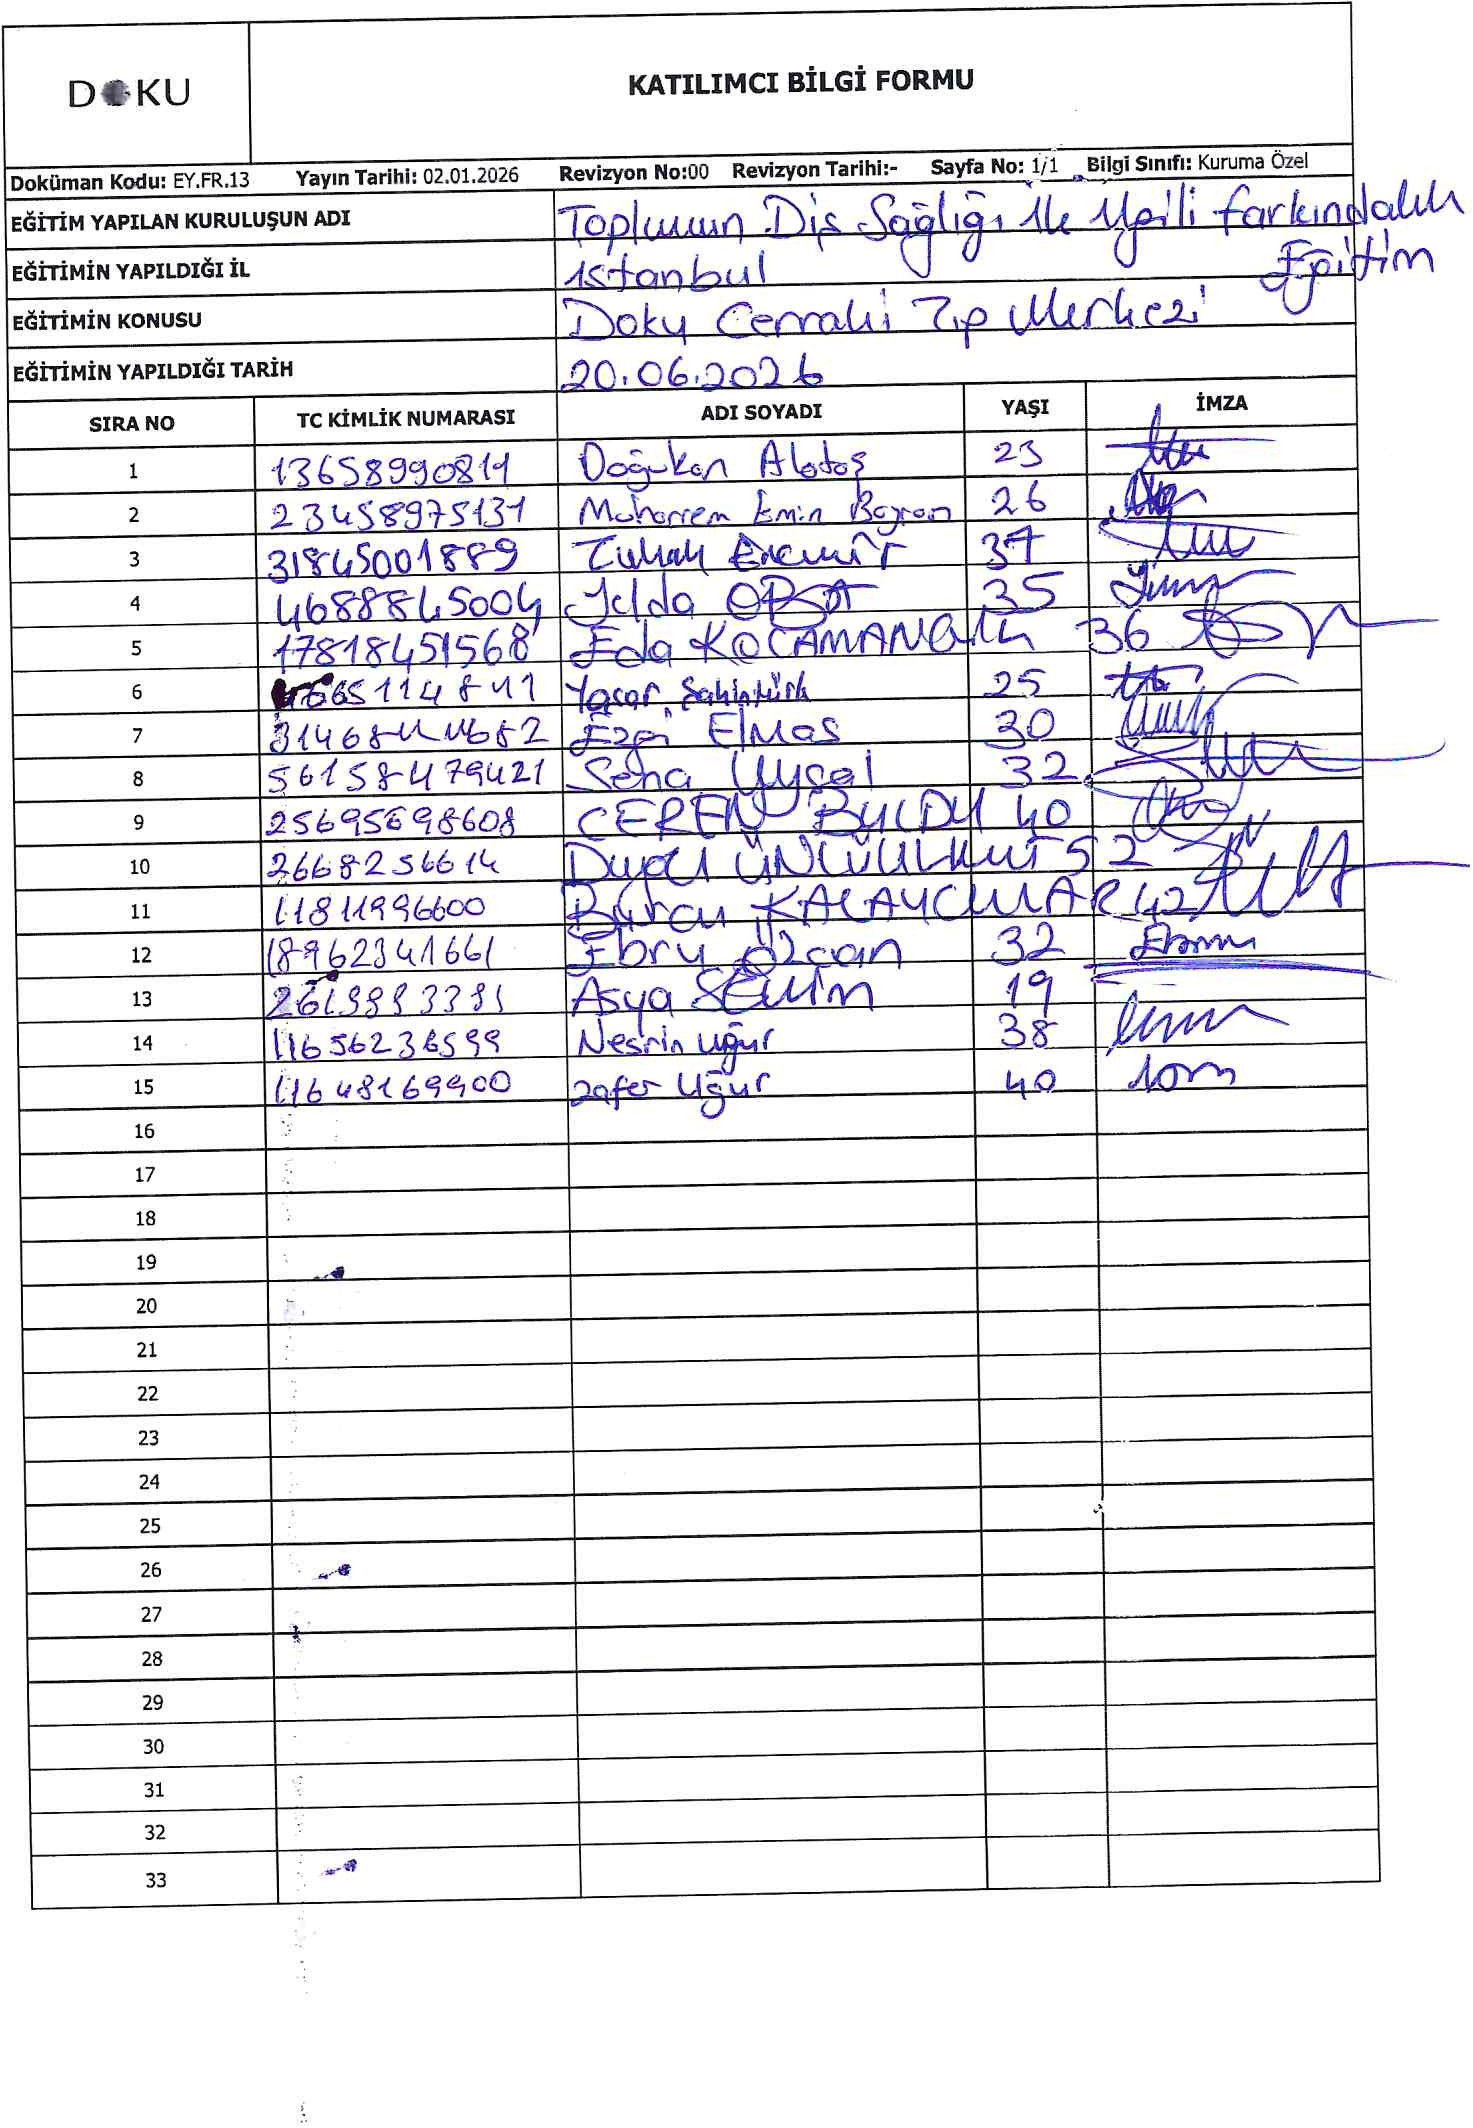 DOKU
KATILIMCI BİLGİ FORMU
Doküman Kodu: EY.FR.13 Yayın Tarihi: 02.01.2026 Revizyon No:00 Revizyon Tarihi:- Sayfa No: 1/1 Bilgi Sınıfı: Kuruma Özel
EĞİTİM YAPILAN KURULUŞUN ADI Toplumun Diş Sağlığı ile ilgili farkındalık
Eğitim
EĞİTİMİN YAPILDIĞI İL istanbul
EĞİTİMİN KONUSU Doku Cerrahi Tıp Merkezi
EĞİTİMİN YAPILDIĞI TARİH 20.06.2026
SIRA NO TC KİMLİK NUMARASI ADI SOYADI YAŞI İMZA
1 13658990819 Doğukan 23
2 23458975131 Muharrem Emin Bayram 26
3 31845001889 37
4 Jelda 35
5 17818451568 Eda KOCAMANOĞLU 36
6 Yaşar Şahintürk 25
7 Ezgi Elmas 30
8 56158479421 Sena Uysal 32
9 25695698608 CEREN BULDU 40
10 2668256614 Duygu 52
11 11811996600 Burcu KALAYCILAR 42
12 18962341661 Ebru Özcan 32
13 Asya SELİM 19
14 11656236599 Nesrin Uğur 38
15 11648169900 zafer Uğur 40
16
17
18
19
20
21
22
23
24
25
26
27
28
29
30
31
32
33